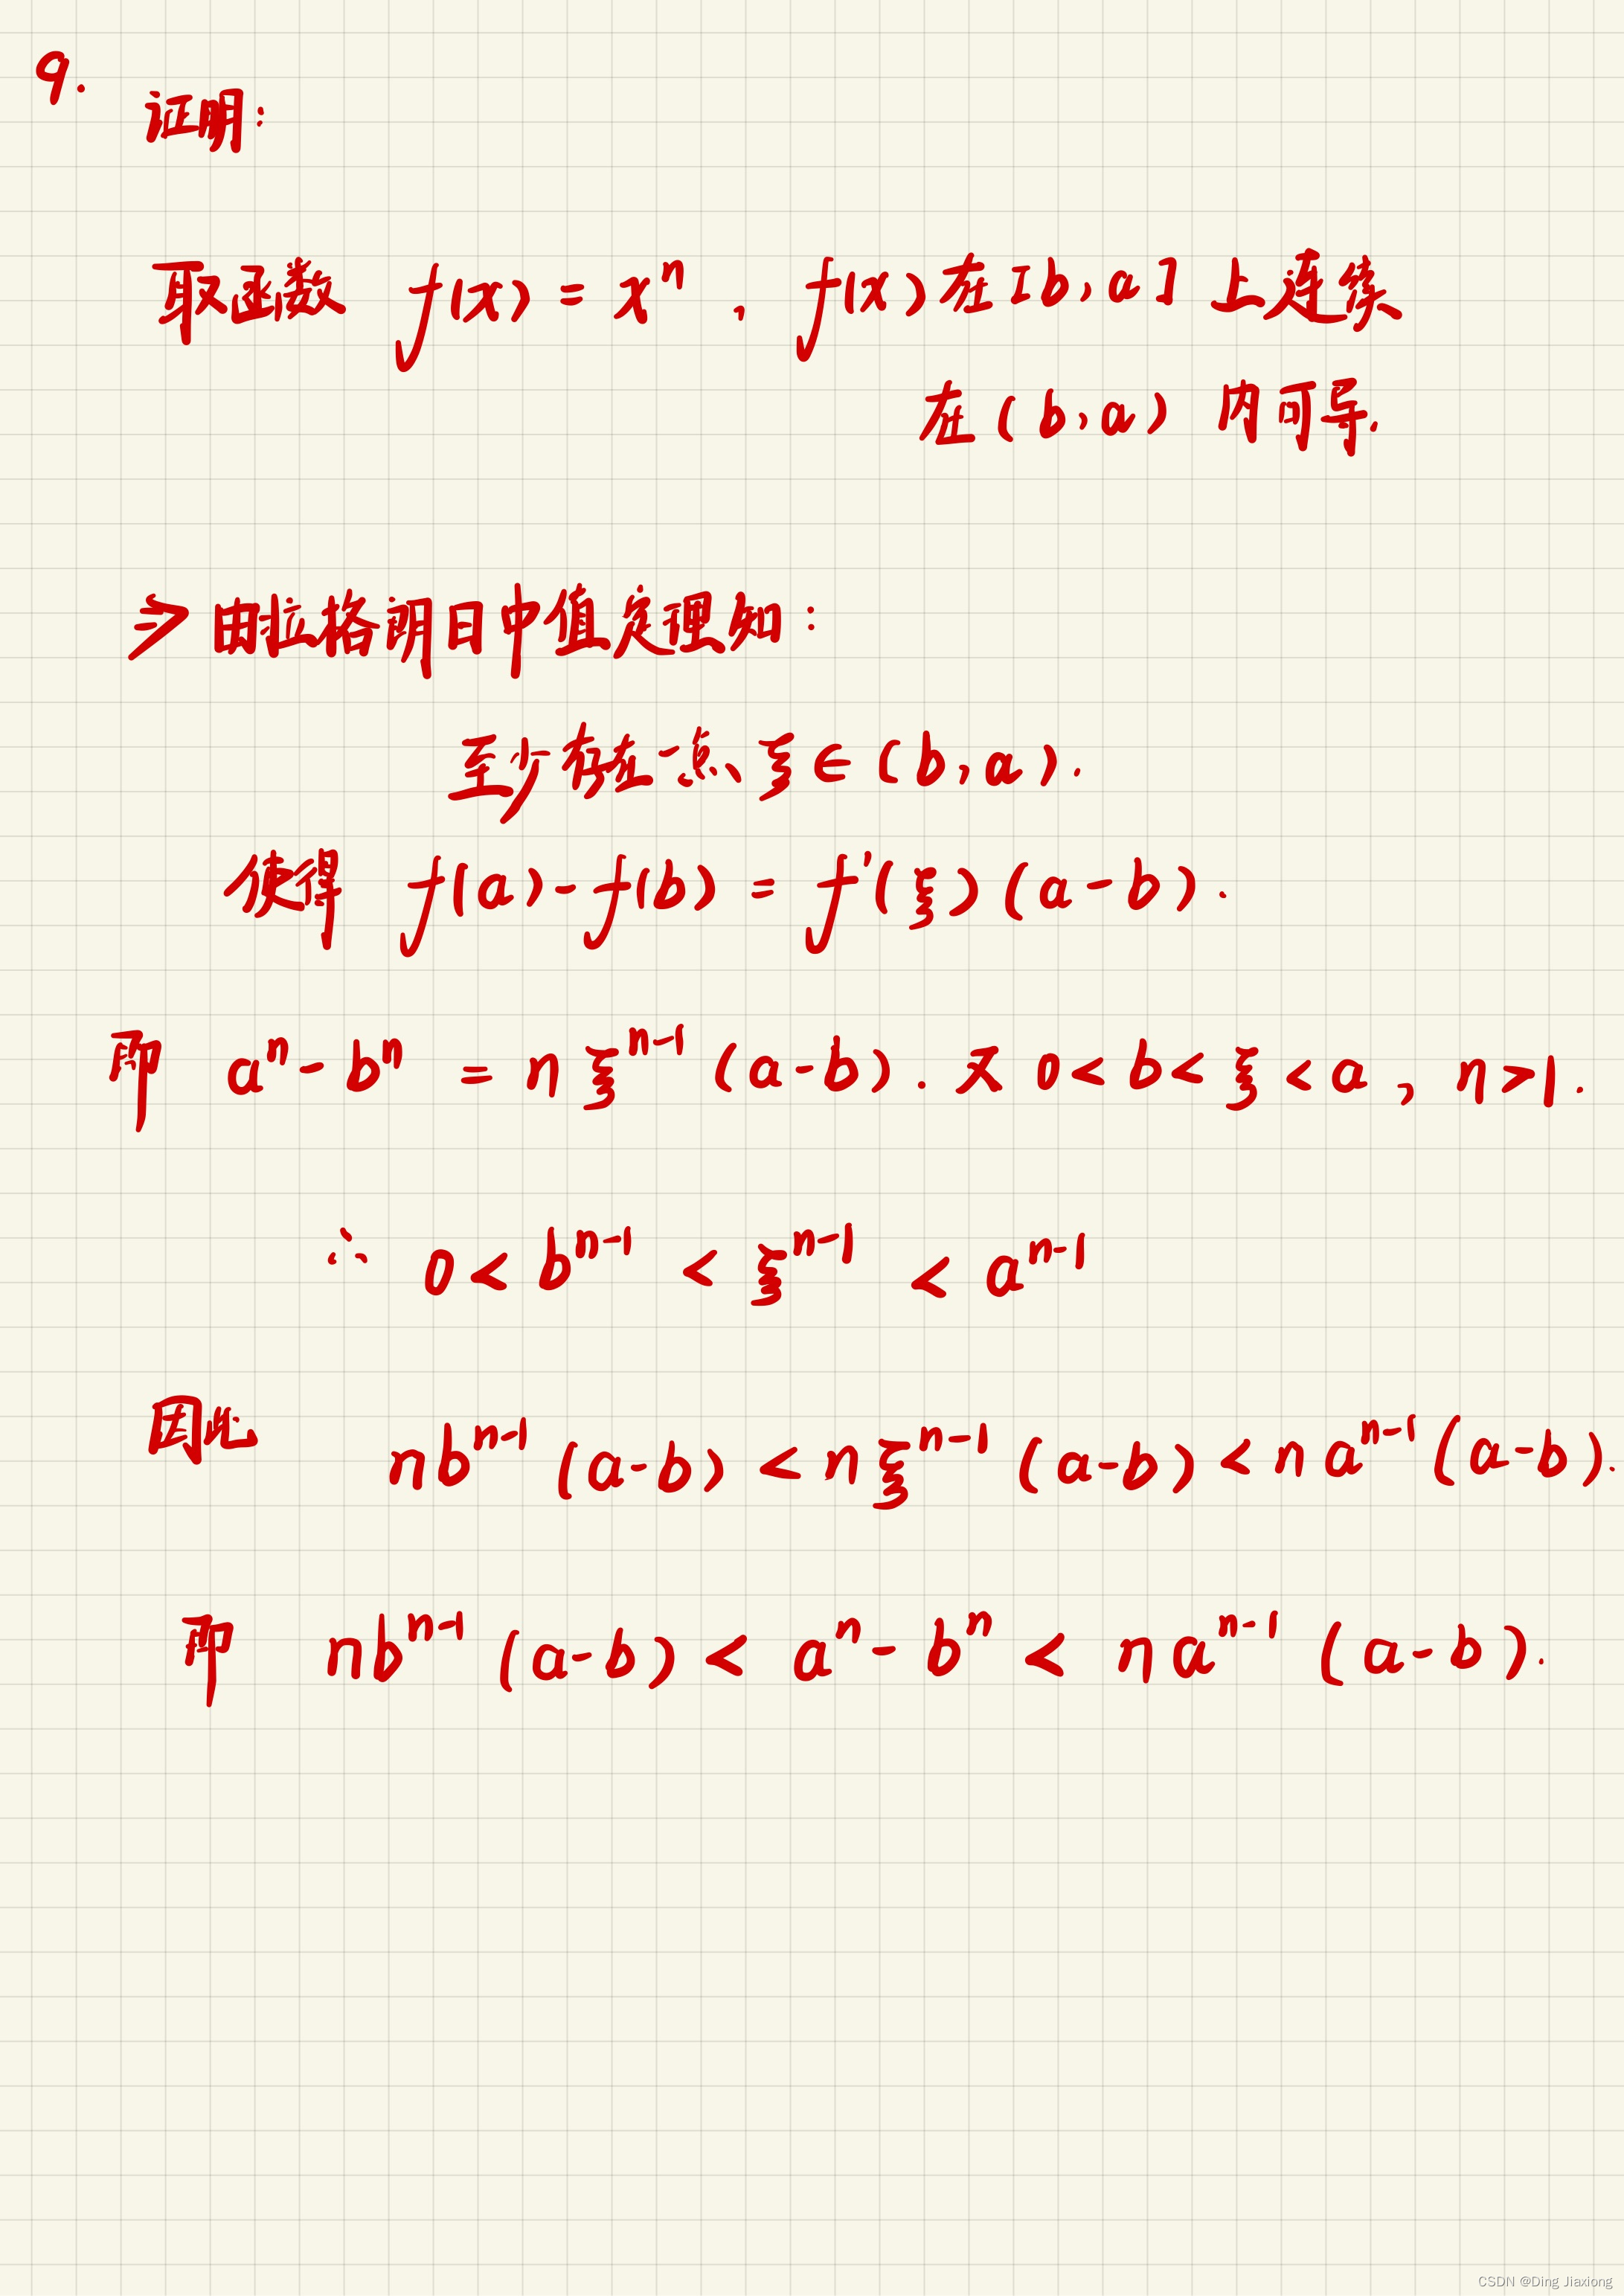 9.
证明:
取函数 f(x) = xⁿ , f(x)在[b,a]上连续
在(b,a)内可导.
⇒由拉格朗日中值定理知:
至少存在一点、ξ∈(b,a).
使得 f(a)-f(b) = f'(ξ)(a-b).
即 aⁿ-bⁿ = nξⁿ⁻¹(a-b). 又 0<b<ξ<a, n>1.
∴ 0<bⁿ⁻¹<ξⁿ⁻¹<aⁿ⁻¹
因此 nbⁿ⁻¹(a-b)<nξⁿ⁻¹(a-b)<naⁿ⁻¹(a-b).
即 nbⁿ⁻¹(a-b)<aⁿ-bⁿ<naⁿ⁻¹(a-b).
CSDN @Ding Jiaxiong